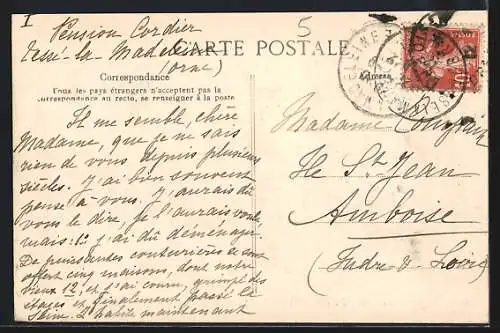 I
5
Pension Cordier
Tessé-la Madeleine
(Orne)
CARTE POSTALE
Correspondance
Tous les pays étrangers n'acceptent pas la
correspondance au recto, se renseigner à la poste
Adresse
Il me semble, chère
Madame, que je ne sais
rien de vous depuis plusieurs
siècles. J'ai bien souvent
pensé à vous. J'aurais dû
vous le dire, je l'aurais voulu
mais: 1º j'ai dû déménager.
De puissantes couturières se sont
offert cinq maisons, dont notre
vieux 12, et j'ai couru, grimpé des
étages et finalement passé la
Seine. J'habite maintenant
Madame
Ile St Jean
Amboise
(Indre & Loire)